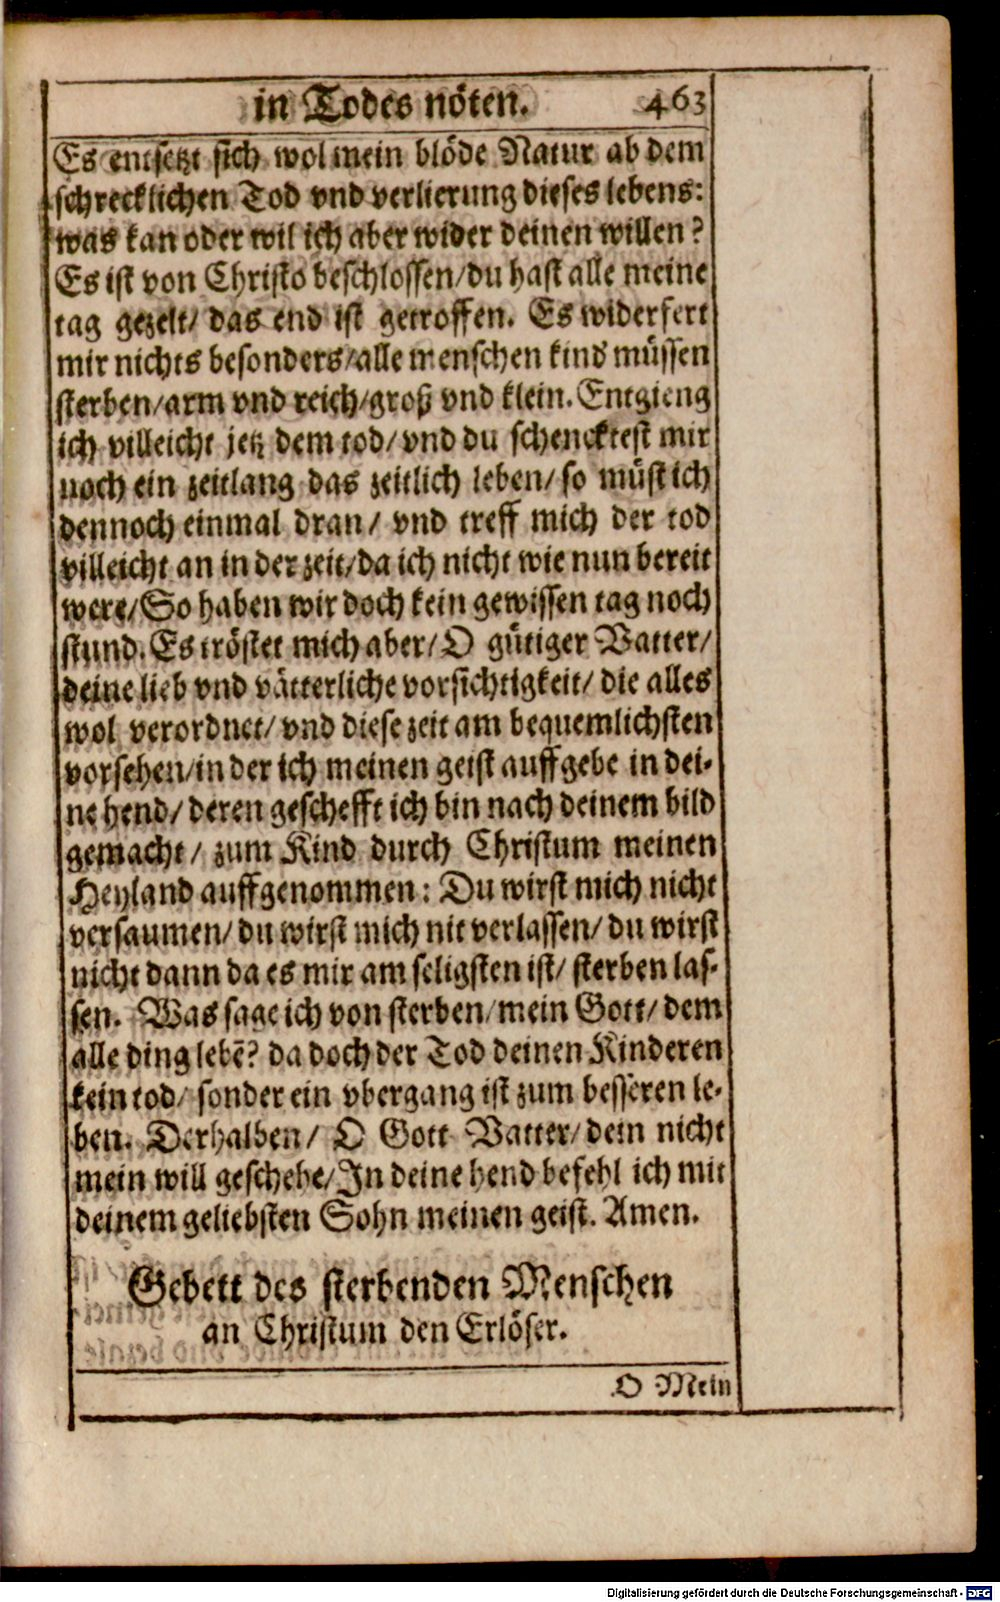 in Todes nöten. 463
Es entsetzt sich wol mein blöde Natur ab dem
schrecklichen Tod vnd verlierung dieses lebens:
was kan oder wil ich aber wider deinen willen?
Es ist von Christo beschlossen/du hast alle meine
tag gezelt/ das end ist getroffen. Es widerfert
mir nichts besonders/alle menschen kind müssen
sterben/arm vnd reich/groß vnd klein. Entgieng
ich villeicht jetz dem tod/ vnd du schencktest mir
noch ein zeitlang das zeitlich leben/ so müst ich
dennoch einmal dran/ vnd treff mich der tod
villeicht an in der zeit/da ich nicht wie nun bereit
were/So haben wir doch kein gewissen tag noch
stund. Es tröstet mich aber/ O gütiger Vatter/
deine lieb vnd vätterliche vorsichtigkeit/ die alles
wol verordnet/ vnd diese zeit am bequemlichsten
vorsehen/in der ich meinen geist auffgebe in dei-
ne hend/ deren geschefft ich bin nach deinem bild
gemacht/ zum Kind durch Christum meinen
Heyland auffgenommen: Du wirst mich nicht
versaumen/ du wirst mich nit verlassen/ du wirst
nicht dann da es mir am seligsten ist/ sterben las-
sen. Was sage ich von sterben/mein Gott/ dem
alle ding lebẽ? da doch der Tod deinen Kinderen
kein tod/ sonder ein vbergang ist zum besseren le-
ben. Derhalben/ O Gott Vatter/ dein nicht
mein will geschehe/In deine hend befehl ich mit
deinem geliebsten Sohn meinen geist. Amen.
Gebett des sterbenden Menschen
an Christum den Erlöser.
O Mein
Digitalisierung gefördert durch die Deutsche Forschungsgemeinschaft - DFG